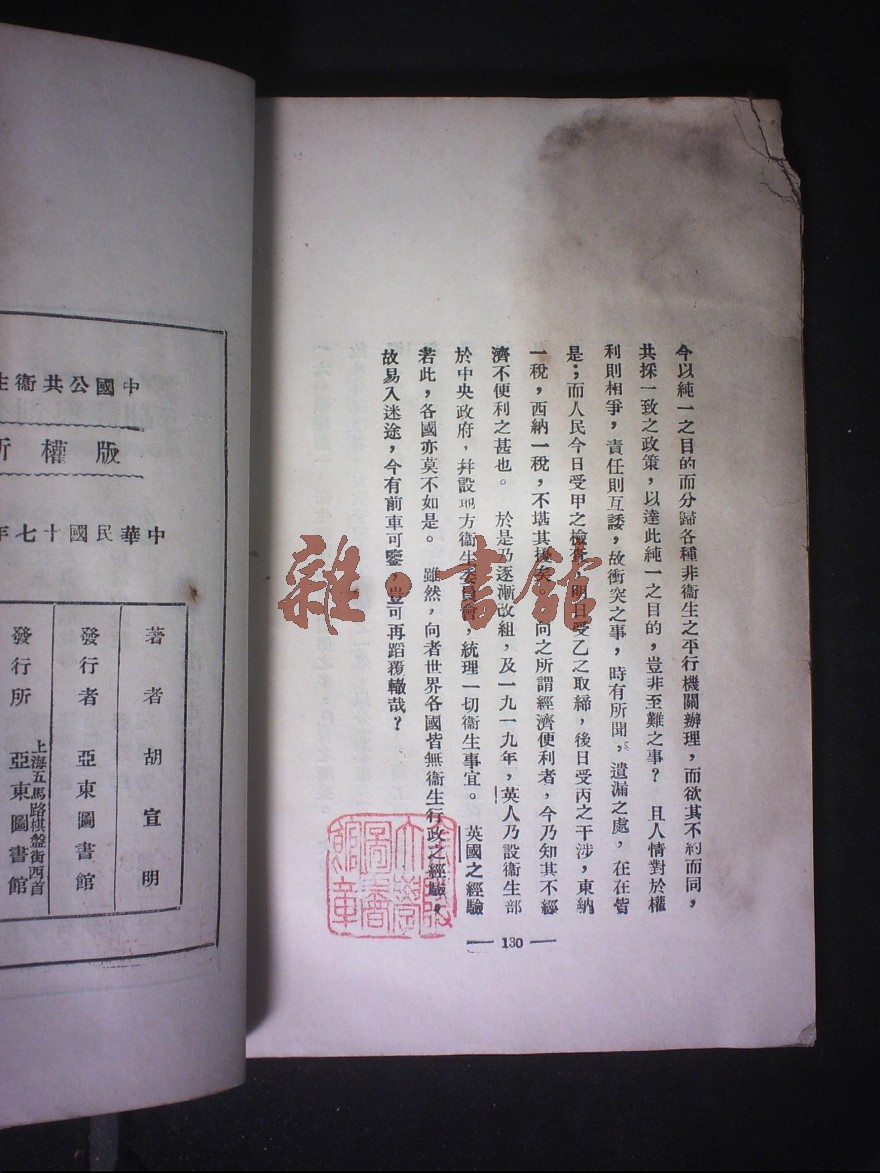 今以純一之目的而分歸各種非衞生之平行機關辦理，而欲其不約而同，
共採一致之政策，以達此純一之目的，豈非至難之事？　且人情對於權
利則相爭，責任則互諉，故衝突之事，時有所聞，遺漏之處，在在皆
是；而人民今日受甲之檢查，明日受乙之取締，後日受丙之干涉，東納
一稅，西納一稅，不堪其擾矣。向之所謂經濟便利者，今乃知其不經
濟不便利之甚也。　於是乃逐漸改組，及一九一九年，英人乃設衞生部
於中央政府，幷設地方衞生委員會，統理一切衞生事宜。　英國之經驗
若此，各國亦莫不如是。　雖然，向者世界各國皆無衞生行政之經驗，
故易入迷途，今有前車可鑒，豈可再蹈覆轍哉？
130
雜·書館
大學
圖書
館章
中國公共衞生
版權所
中華民國十七年
著者　胡宣明
發行者　亞東圖書館
上海五馬路棋盤街西首
發行所　亞東圖書館